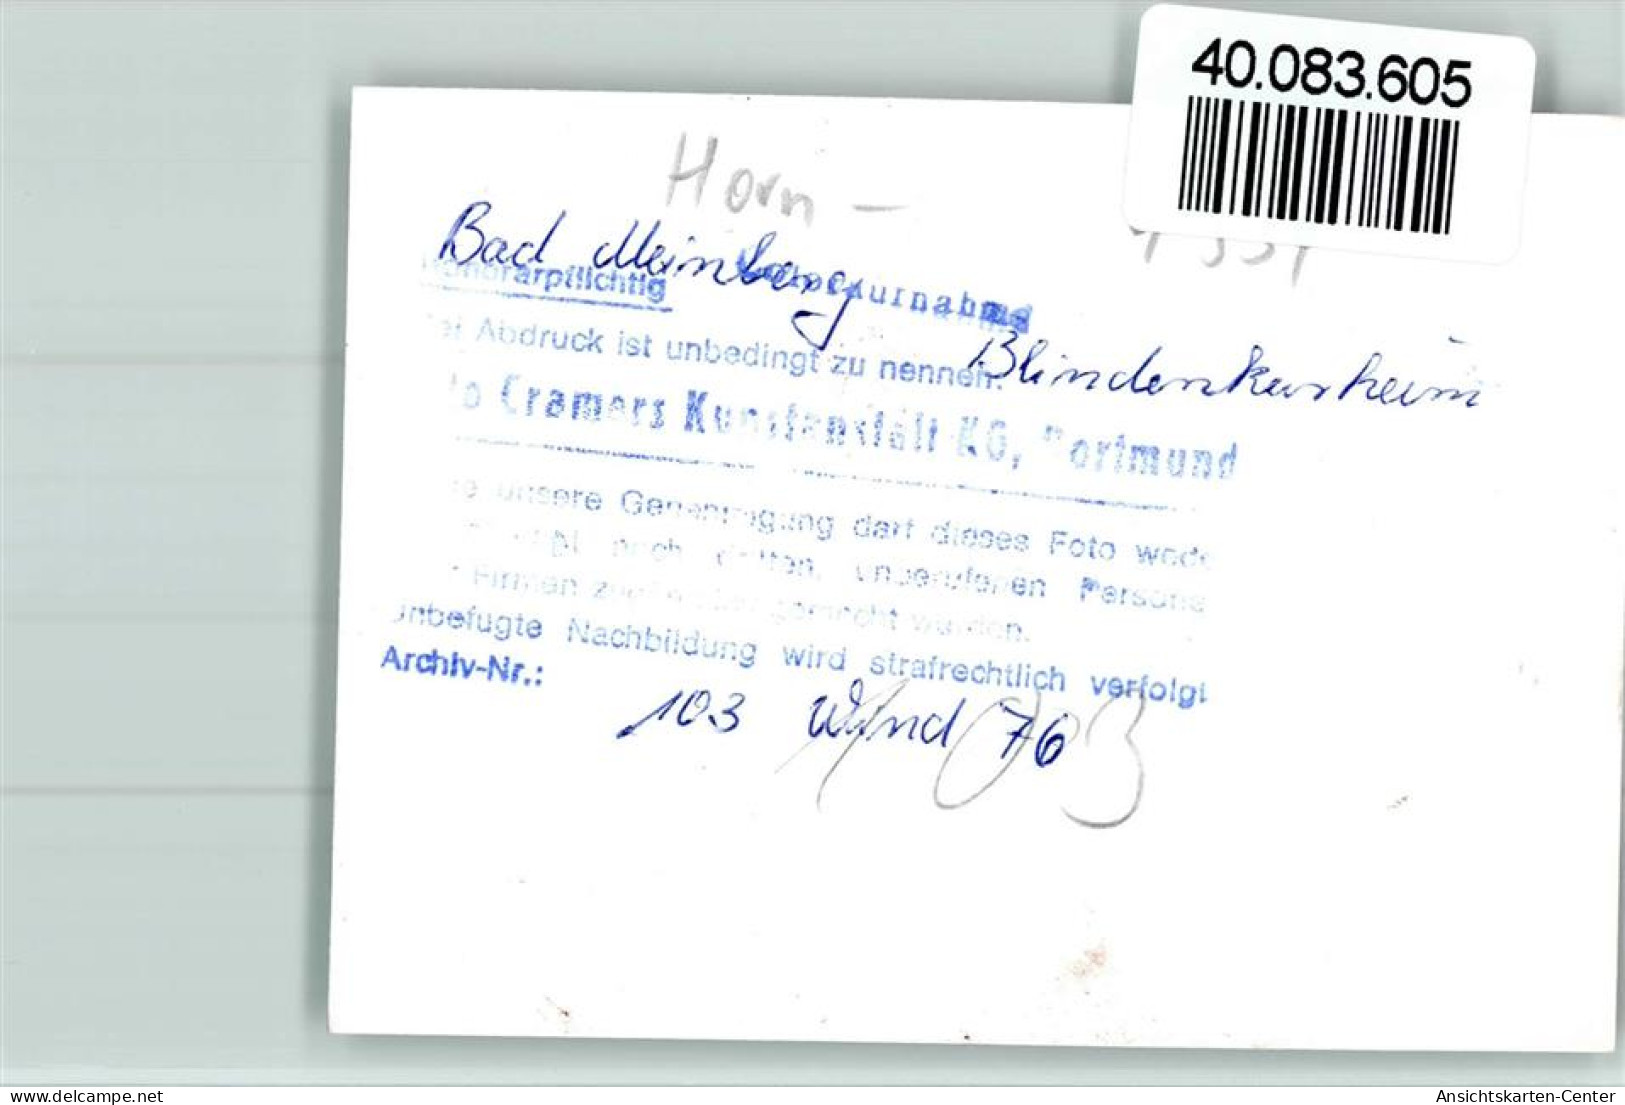 40.083.605
Horn -
Bad Meinberg
Honorarpflichtig
Abdruck ist unbedingt zu nennen:
Blindenkurheim
Cramers Kunstanstalt KG, Dortmund
unsere Genehmigung darf dieses Foto
noch dritten, unberufenen
Firmen gemacht werden.
Unbefugte Nachbildung wird strafrechtlich verfolgt
Archiv-Nr.:
103 Wind 76
delcampe.net
Ansichtskarten-Center